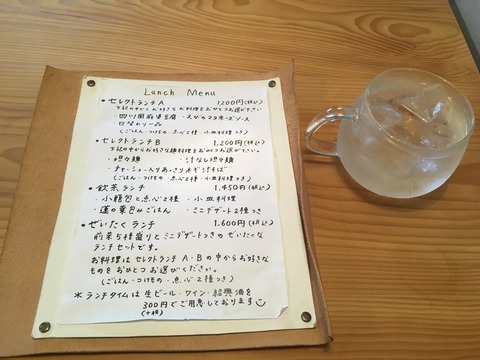 Lunch Menu
• セレクトランチA 1,200円(税込)
下記の中からお好きなお料理をおひとつお選び下さい
・四川風麻婆豆腐 ・えびのマヨネーズソース
・日替わり一品
(ごはん・つけもの・点心2種・小皿料理つき)
• セレクトランチB 1,200円(税込)
下記の中からお好きな麺料理をおひとつお選び下さい。
・坦々麺 ・汁なし坦々麺
・チャーシュー入りあっさりネギそば
(ごはん・つけもの・点心2種・小皿料理つき)
• 飲茶ランチ 1,450円(税込)
・小籠包と点心2種 ・小皿料理
・蓮の葉包みごはん ・ミニデザート2種つき
• ぜいたくランチ 1,600円(税込)
前菜5種盛りとミニデザートつきのぜいたくな
ランチセットです。
お料理はセレクトランチA・Bの中からお好きな
ものをおひとつお選びください。
(ごはん・つけもの・点心2種つき)
＊ランチタイムは生ビール・ワイン・紹興酒を
300円でご用意しております
(+税)